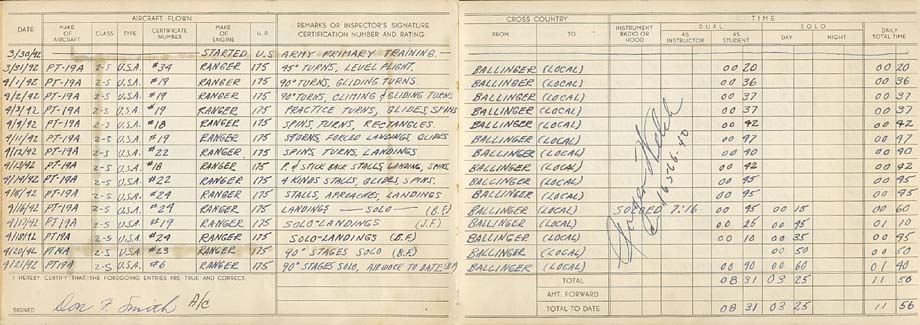 AIRCRAFT FLOWN
DATE MAKE OF AIRCRAFT CLASS TYPE CERTIFICATE NUMBER MAKE OF ENGINE H.P. REMARKS OR INSPECTOR'S SIGNATURE CERTIFICATION NUMBER AND RATING
3/30/42 STARTED U.S ARMY PRIMARY TRAINING.
3/31/42 PT-19A 2-S U.S.A. #34 RANGER 175 45° TURNS, LEVEL FLIGHT.
4/1/42 PT-19A 2-S U.S.A. #19 RANGER 175 90° TURNS, GLIDING TURNS
4/2/42 PT-19A 2-S U.S.A. #19 RANGER 175 90° TURNS, CLIMING & GLIDING TURNS
4/3/42 PT-19A 2-S U.S.A. #19 RANGER 175 PRACTICE TURNS, GLIDES, SPINS
4/4/42 PT-19A 2-S U.S.A. #18 RANGER 175 SPINS, TURNS, RECTANGLES
PT-19A 2-S U.S.A. #19 RANGER 175 FORCED LANDINGS, GLIDES
4/12/42 PT-19A 2-S U.S.A. #22 RANGER 175 SPINS, TURNS, LANDINGS
4/13/42 PT-19A 2-S U.S.A. #18 RANGER 175 STICK BACK STALLS, LANDING, SPINS
4/14/42 PT-19A 2-S U.S.A. #22 RANGER 175 4 KINDS STALLS, GLIDES, SPINS.
PT-19A 2-S U.S.A. #24 RANGER 175 STALLS, APROACHES, LANDINGS
4/16/42 PT-19A 2-S U.S.A. #24 RANGER 175 LANDINGS — SOLO — (B.F.)
4/17/42 PT-19A 2-S U.S.A. #19 RANGER 175 SOLO-LANDINGS (J.F.)
4/18/42 PT19A 2-S U.S.A. #24 RANGER 175 SOLO-LANDINGS (B.F.)
4/20/42 2-S U.S.A. #23 RANGER 175 90° STAGES SOLO (B.F.)
4/21/42 PT19A 2-S U.S.A. #6 RANGER 175 90° STAGES SOLO, AIRWORK TO DATE (B.F.)
I HEREBY CERTIFY THAT THE FORGOING ENTRIES ARE TRUE AND CORRECT.
SIGNED Don F. Smith A/c
CROSS COUNTRY TIME
FROM TO INSTRUMENT RADIO OR HOOD DUAL SOLO DAILY TOTAL TIME
AS INSTRUCTOR AS STUDENT DAY NIGHT
BALLINGER (LOCAL) 00 20 00 20
BALLINGER (LOCAL) 00 36 00 36
BALLINGER (LOCAL) 00 37 00 37
BALLINGER (LOCAL) 00 37 00 37
BALLINGER (LOCAL) 00 42 00 42
BALLINGER (LOCAL) 00 47 00 47
BALLINGER (LOCAL) 00 40 00 40
BALLINGER (LOCAL) 00 42 00 42
BALLINGER (LOCAL) 00 45 00 45
BALLINGER (LOCAL) 00 45 00 45
BALLINGER (LOCAL) SOLOED 7:16 00 45 00 15 00 60
BALLINGER (LOCAL) 00 25 00 45 01 10
BALLINGER (LOCAL) 00 10 00 35 00 45
BALLINGER (LOCAL) 00 50 00 50
BALLINGER (LOCAL) 00 40 00 60 01 40
TOTAL 08 31 03 25 11
AMT. FORWARD
TOTAL TO DATE 08 31 03 25 11 56